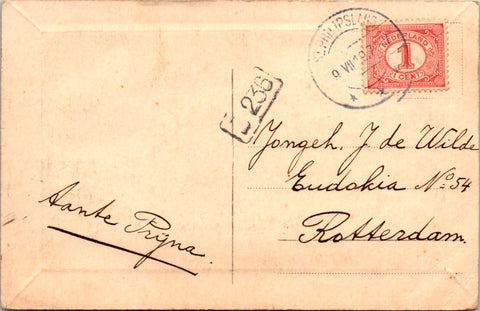 ST PHILIPSLAND
9 VII 19
NEDERLAND
1
1 CENT
236
Jongeh. J de Wilde
Eudokia No 54
Rotterdam.
Tante Pryna.